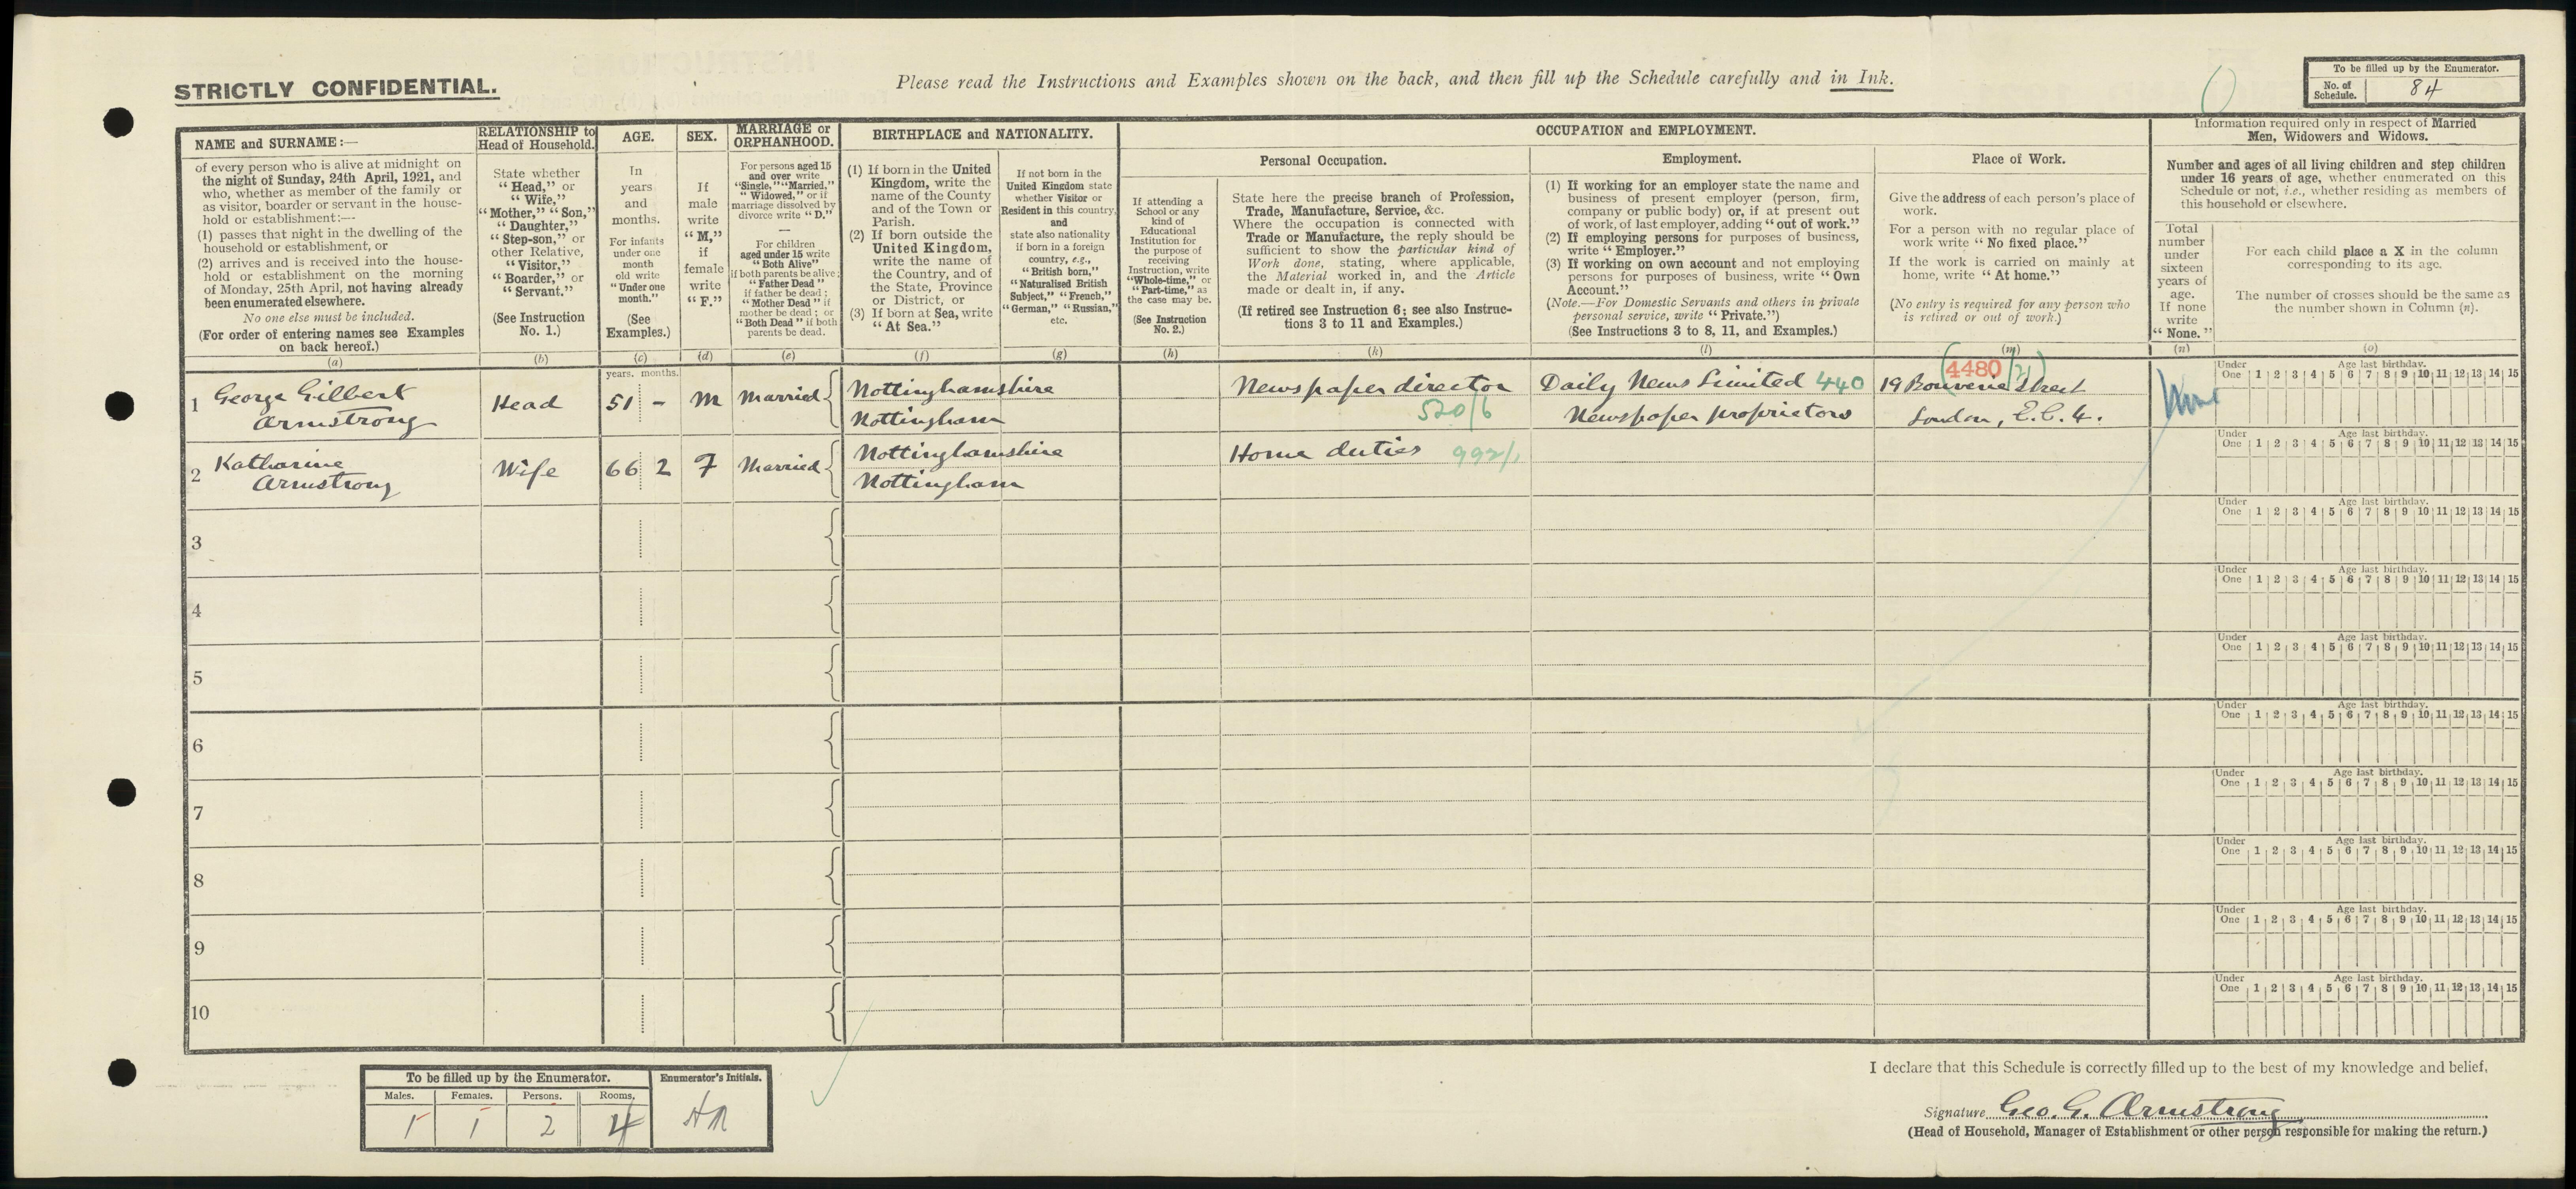 STRICTLY CONFIDENTIAL.
Please read the Instructions and Examples shown on the back, and then fill up the Schedule carefully and in Ink.
To be filled up by the Enumerator.
No. of Schedule. 84
NAME and SURNAME :—
of every person who is alive at midnight on
the night of Sunday, 24th April, 1921, and
who, whether as member of the family or
as visitor, boarder or servant in the house-
hold or establishment :—
(1) passes that night in the dwelling of the
household or establishment, or
(2) arrives and is received into the house-
hold or establishment on the morning
of Monday, 25th April, not having already
been enumerated elsewhere.
No one else must be included.
(For order of entering names see Examples
on back hereof.)
(a)
RELATIONSHIP to
Head of Household.
State whether
“Head,” or
“Wife,”
“Mother,” “Son,”
“Daughter,”
“Step-son,” or
other Relative,
“Visitor,”
“Boarder,” or
“Servant.”
(See Instruction
No. 1.)
(b)
AGE.
In
years
and
months.
For infants
under one
month
old write
“Under one
month.”
(See
Examples.)
(c)
SEX.
If
male
write
“M,”
if
female
write
“F.”
(d)
MARRIAGE or
ORPHANHOOD.
For persons aged 15
and over write
“Single,” “Married,”
“Widowed,” or if
marriage dissolved by
divorce write “D.”
—
For children
aged under 15 write
“Both Alive”
if both parents be alive;
“Father Dead”
if father be dead;
“Mother Dead” if
mother be dead; or
“Both Dead” if both
parents be dead.
(e)
BIRTHPLACE and NATIONALITY.
(1) If born in the United
Kingdom, write the
name of the County
and of the Town or
Parish.
(2) If born outside the
United Kingdom,
write the name of
the Country, and of
the State, Province
or District, or
(3) If born at Sea, write
“At Sea.”
(f)
If not born in the
United Kingdom state
whether Visitor or
Resident in this country,
and
state also nationality
if born in a foreign
country, e.g.,
“British born,”
“Naturalised British
Subject,” “French,”
“German,” “Russian,”
etc.
(g)
OCCUPATION and EMPLOYMENT.
If attending a
School or any
kind of
Educational
Institution for
the purpose of
receiving
Instruction, write
“Whole-time,” or
“Part-time,” as
the case may be.
(See Instruction
No. 2.)
(h)
Personal Occupation.
State here the precise branch of Profession,
Trade, Manufacture, Service, &c.
Where the occupation is connected with
Trade or Manufacture, the reply should be
sufficient to show the particular kind of
Work done, stating, where applicable,
the Material worked in, and the Article
made or dealt in, if any.
(If retired see Instruction 6; see also Instruc-
tions 3 to 11 and Examples.)
(k)
Employment.
(1) If working for an employer state the name and
business of present employer (person, firm,
company or public body) or, if at present out
of work, of last employer, adding “out of work.”
(2) If employing persons for purposes of business,
write “Employer.”
(3) If working on own account and not employing
persons for purposes of business, write “Own
Account.”
(Note.—For Domestic Servants and others in private
personal service, write “Private.”)
(See Instructions 3 to 8, 11, and Examples.)
(l)
Place of Work.
Give the address of each person’s place of
work.
For a person with no regular place of
work write “No fixed place.”
If the work is carried on mainly at
home, write “At home.”
(No entry is required for any person who
is retired or out of work.)
(m)
Information required only in respect of Married
Men, Widowers and Widows.
Number and ages of all living children and step children
under 16 years of age, whether enumerated on this
Schedule or not, i.e., whether residing as members of
this household or elsewhere.
Total
number
under
sixteen
years of
age.
If none
write
“None.”
(n)
For each child place a X in the column
corresponding to its age.
The number of crosses should be the same as
the number shown in Column (n).
(o)
years. months.
1 George Gilbert Armstrong
Head
51 –
M
Married
Nottinghamshire
Nottingham
Newspaper director
520/6
Daily News Limited 440
Newspaper proprietors
4480
19 Bouverie Street
London, E.C. 4.
None
Under One Age last birthday. 1 2 3 4 5 6 7 8 9 10 11 12 13 14 15
2 Katharine Armstrong
Wife
66 2
F
Married
Nottinghamshire
Nottingham
Home duties 992/1
Under One Age last birthday. 1 2 3 4 5 6 7 8 9 10 11 12 13 14 15
3
Under One Age last birthday. 1 2 3 4 5 6 7 8 9 10 11 12 13 14 15
4
Under One Age last birthday. 1 2 3 4 5 6 7 8 9 10 11 12 13 14 15
5
Under One Age last birthday. 1 2 3 4 5 6 7 8 9 10 11 12 13 14 15
6
Under One Age last birthday. 1 2 3 4 5 6 7 8 9 10 11 12 13 14 15
7
Under One Age last birthday. 1 2 3 4 5 6 7 8 9 10 11 12 13 14 15
8
Under One Age last birthday. 1 2 3 4 5 6 7 8 9 10 11 12 13 14 15
9
Under One Age last birthday. 1 2 3 4 5 6 7 8 9 10 11 12 13 14 15
10
Under One Age last birthday. 1 2 3 4 5 6 7 8 9 10 11 12 13 14 15
To be filled up by the Enumerator.
Enumerator’s Initials.
Males. Females. Persons. Rooms.
1 1 2 4
I declare that this Schedule is correctly filled up to the best of my knowledge and belief,
Signature Geo. G. Armstrong
(Head of Household, Manager of Establishment or other person responsible for making the return.)